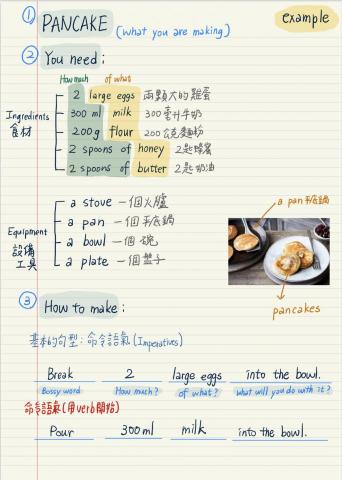 ① PANCAKE (what you are making)
example
② You need:
How much of what
Ingredients 食材
2 large eggs 兩顆大的雞蛋
300 ml milk 300毫升牛奶
200g flour 200公克麵粉
2 spoons of honey 2匙蜂蜜
2 spoons of butter 2匙奶油
Equipment 設備 工具
a stove 一個火爐
a pan 一個平底鍋
a bowl 一個碗
a plate 一個盤子
a pan 平底鍋
pancakes
③ How to make:
基本的句型:命令語氣 (Imperatives)
Break 2 large eggs into the bowl.
Bossy word How much? of what? what will you do with it?
命令語氣(用verb開始)
Pour 300ml milk into the bowl.